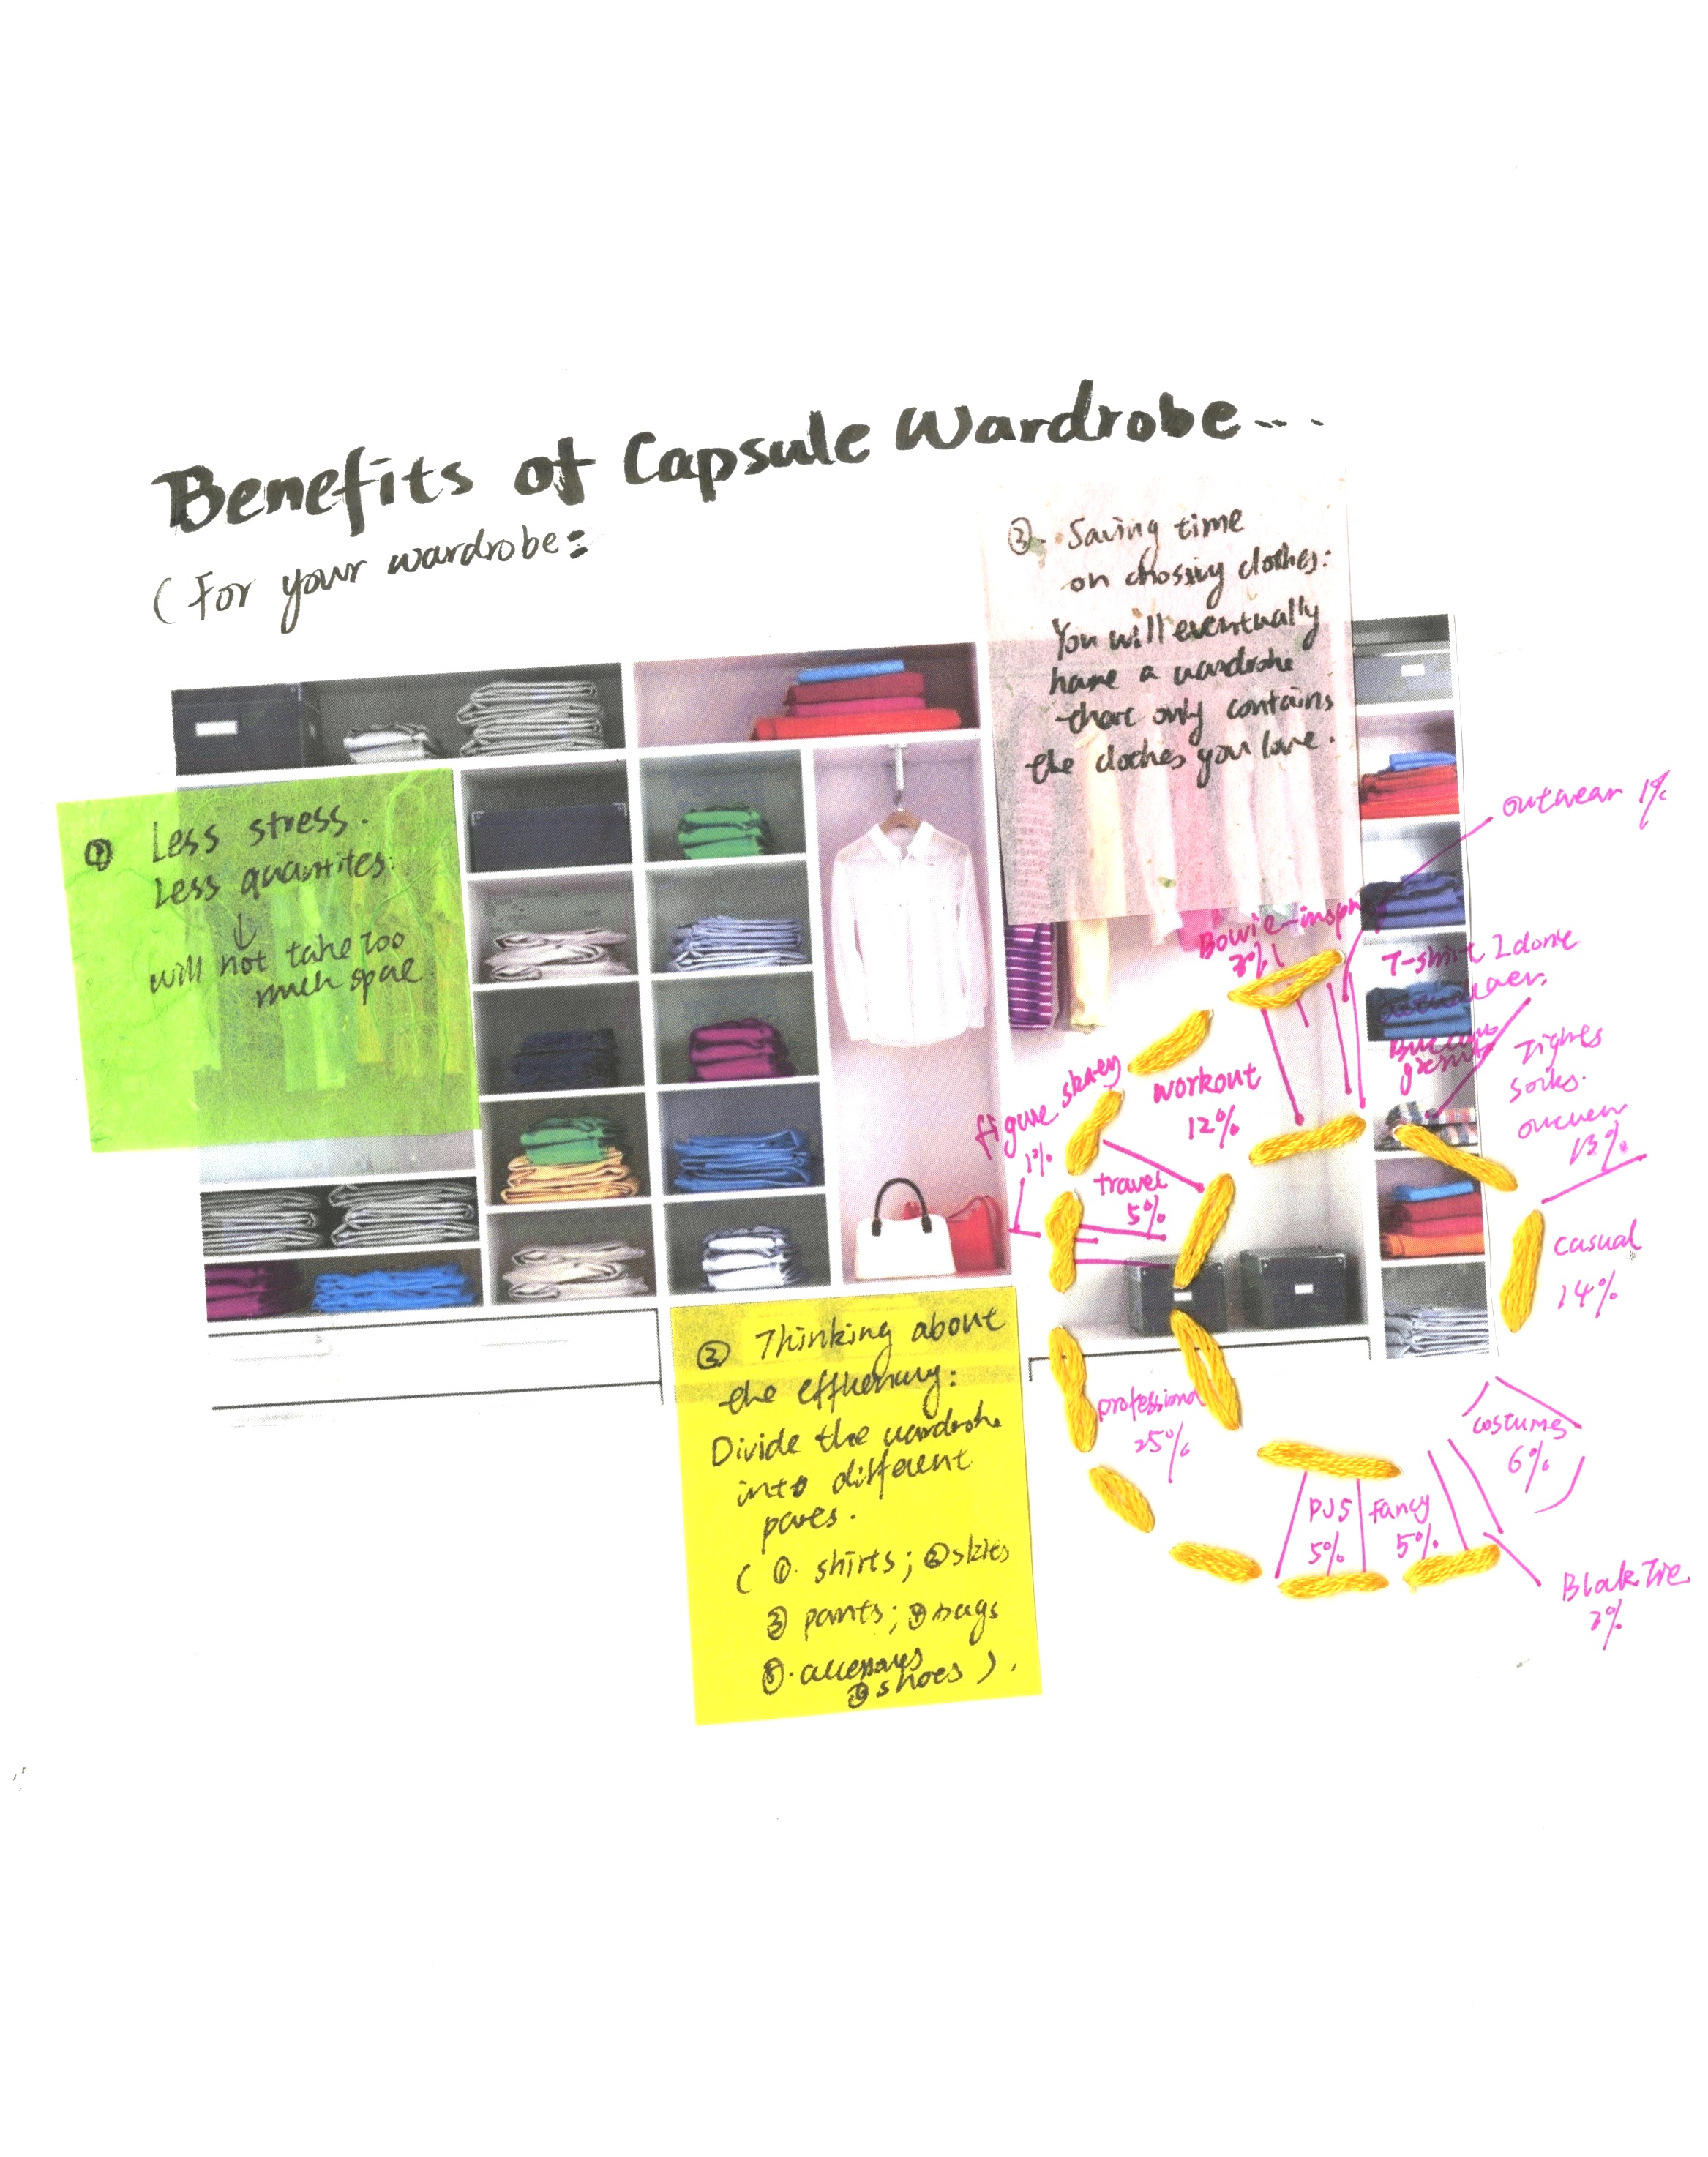 Benefits of Capsule Wardrobe...
(For your wardrobe:
① Less stress.
Less quantites:
↓
will not take too
much space
② Thinking about
the
Divide the wardrobe
into different
( ①. shirts; ②
③ pants; ④ bags
⑤.
⑥ shoes ).
③. Saving time
on clothes:
You will eventually
have a wardrobe
that only contains
the clothes you love.
outwear 1%
Bowie-insp
T-shirt I don't
Tights
socks.
13%
casual
14%
costumes
6%
Black Tie
Fancy
5%
PJs
5%
professional
25%
travel
5%
figure
1%
workout
12%